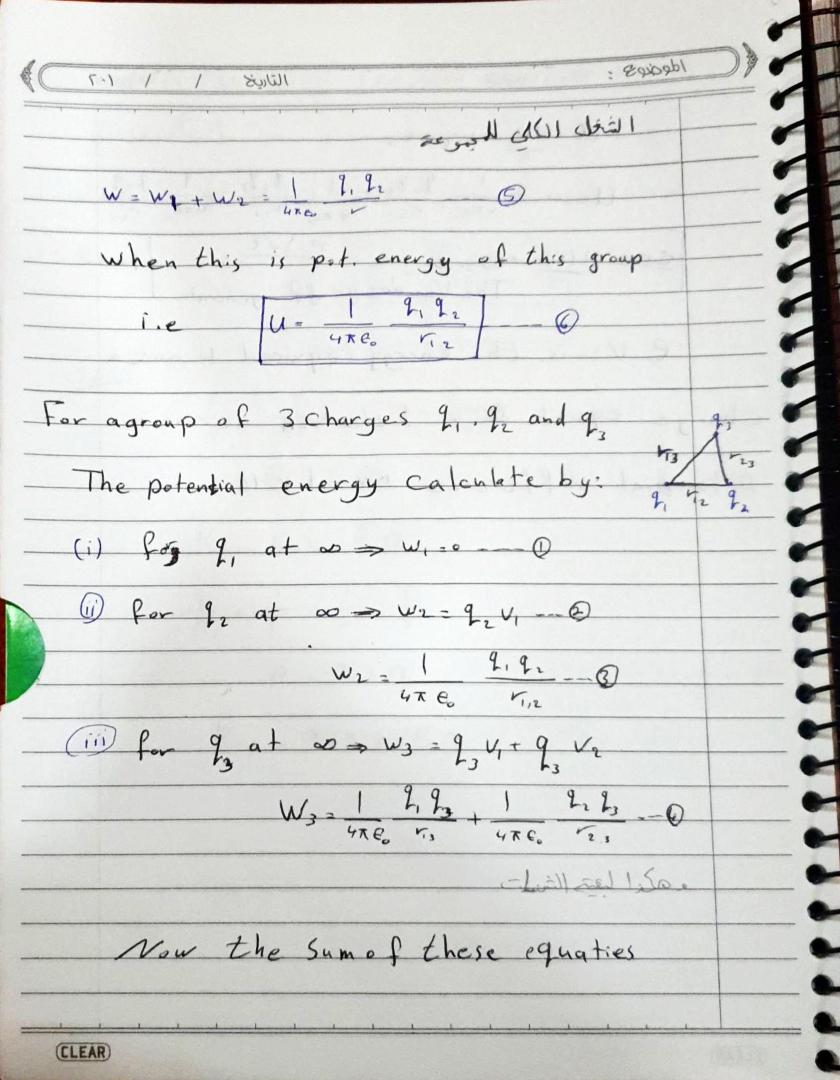 الموضوع :
التاريخ / / ٢٠١
الشغل الكلي للمجموعة
W = W1 + W2 = 1/4πε₀ q₁ q₂/r ⑤
When this is pot. energy of this group
i.e U = 1/4πε₀ q₁ q₂/r₁₂ ------ ⑥
For a group of 3 charges q₁ . q₂ and q₃
q₃
r₁₃ r₂₃
q₁ r₁₂ q₂
The potential energy calculate by:
(i) for q₁ at ∞ ⇒ W₁ = 0 ------ ①
(ii) for q₂ at ∞ ⇒ W₂ = q₂ V₁ ---- ②
W₂ = 1/4πε₀ q₁ q₂/r₁,₂ ---- ③
(iii) for q₃ at ∞ ⇒ W₃ = q₃ V₁ + q₃ V₂
W₃ = 1/4πε₀ q₁ q₃/r₁₃ + 1/4πε₀ q₂ q₃/r₂₃ --- ④
وهكذا لبقية الشحنات
Now the Sum of these equaties
CLEAR